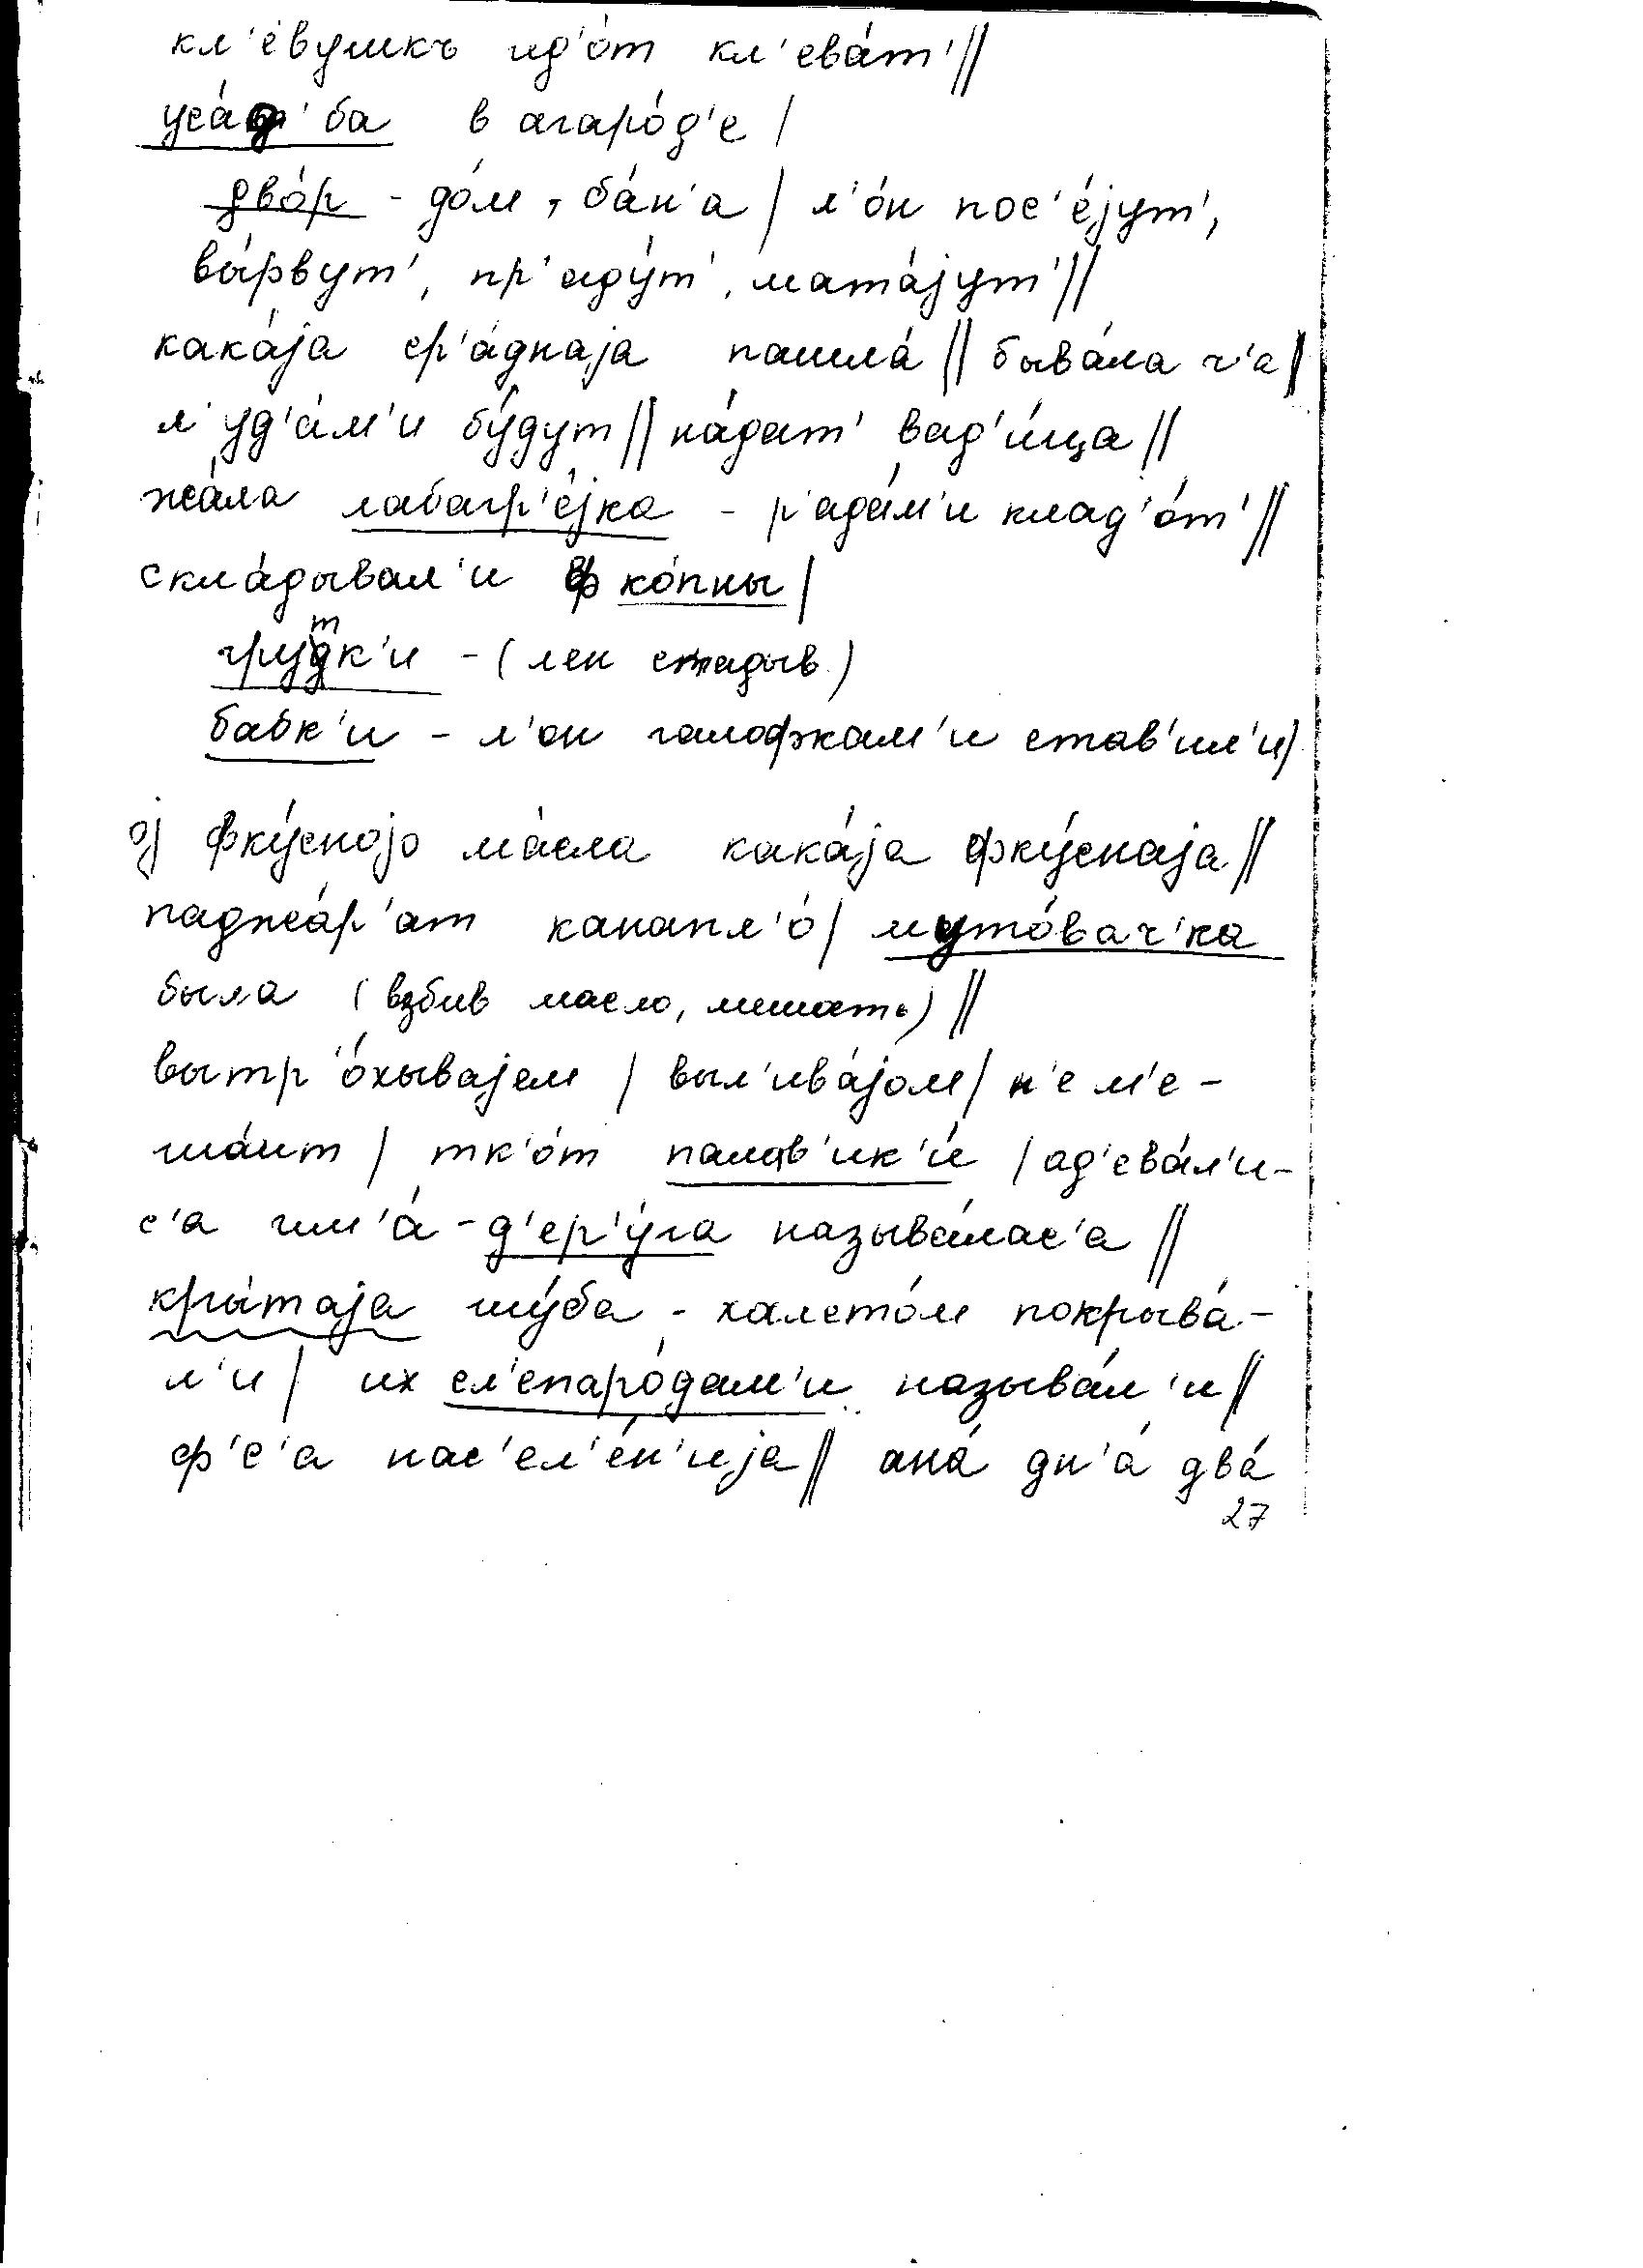 кл'е́вушкъ ид'о́т кл'ева́т'//
уса́д'ба в агаро́д'е /
дво́р - до́м, ба́н'а / л'о́н пос'е́јут',
вы́рвут', пр'аду́т', мата́јут'//
кака́јa ср'а́днаја пашла́ // быва́ла ч'а //
л'уд'а́м'и бу́дут // на́дат' вад'и́ца //
жа́ла лабагр'е́јка - р'ада́м'и клад'о́т' //
скла́дывал'и ф ко́пны /
грутк'и - (лен складыв.)
бабк'и - л'он галофкам'и став'ил'и)
ој фку́сноjо ма́сла кака́ја фку́снаја //
паджа́р'ат канапл'о́ / муто́вач'ка
была (взбив масло, мешать) //
вытр'о́хывајем / выл'ива́јом / н'е м'е -
ша́ит / тк'о́т палав'ик'и́ / ад'ева́л'и-
с'а - д'ер'у́га называ́лас'а //
кры́таја шу́ба - халсто́м покрыва́-
л'и / их сл'епаро́дам'и называ́л'и //
ф'с'а нас'ел'е́н'ија // ана́ дн'а́ два́
27